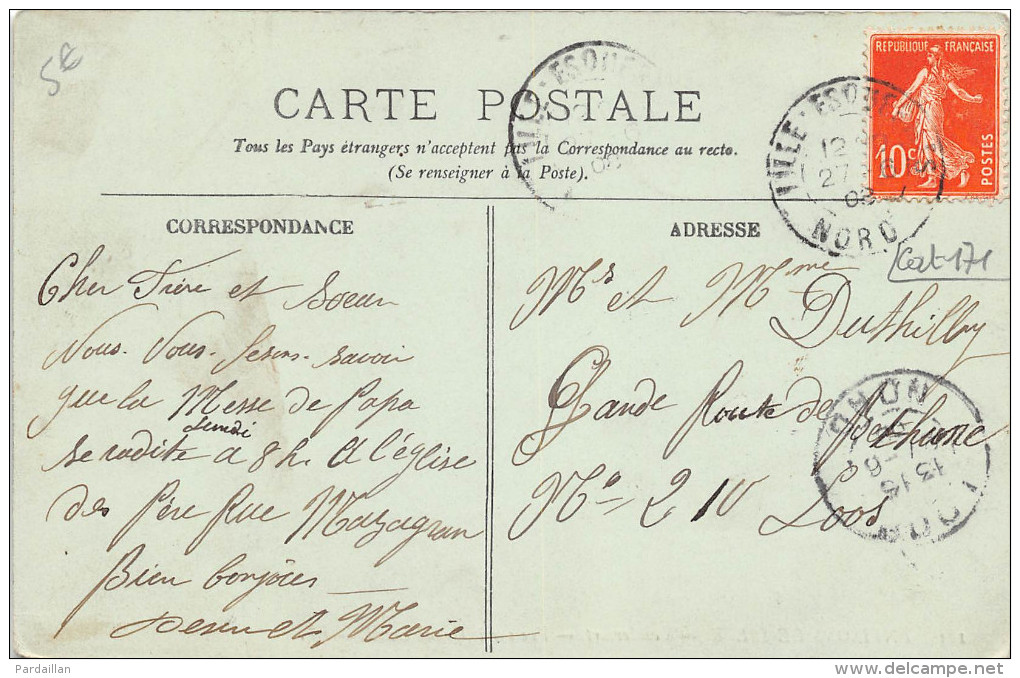 5€
RÉPUBLIQUE FRANÇAISE
10c
POSTES
CARTE POSTALE
Tous les Pays étrangers n'acceptent pas la Correspondance au recto.
(Se renseigner à la Poste).
12
27
08
NORD
Cat 171
CORRESPONDANCE
Cher Frère et Soeur
Nous Vous fesons savoir
que la Messe de Papa
Lundi
se radite a 8h. A l'église
des Père Rue Mazagran
Bien bonjores
et Marie
ADRESSE
Mr et Mme
Duthilly
Grande Route de Béthune
No 210 Loos
NORD
13 15
LOOS
Pardaillan
http://pardaillan.delcampe.net